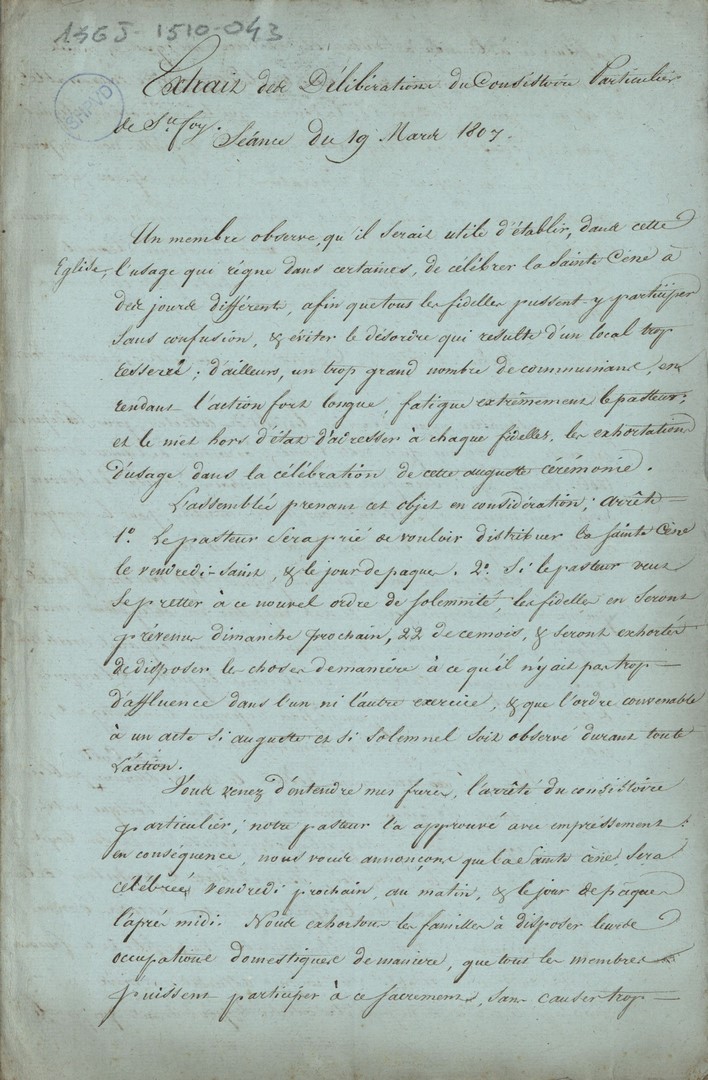 136J-1510-043
SHPVD
Extrait des Délibérations du Consistoire Particulier
de Ste foy.
Séance du 19 Mars 1807.
Un membre observe, qu'il serait utile d'établir, dans cette
Eglise, l'usage qui règne dans certaines, de célébrer la Sainte Cène à
des jours différents, afin que tous les fidelles pussent y participer
sans confusion, & éviter le désordre qui resulte d'un local trop
resserré ; d'ailleurs, un trop grand nombre de communians, en
rendant l'action fort longue, fatigue extrêmement le pasteur ;
et le met hors d'état d'adresser à chaque fidelles, les exhortations
d'usage dans la célébration de cette auguste cérémonie.
L'assemblée prenant cet objet en considération ; arrête
1º. Le pasteur sera prié de vouloir distribuer la sainte Cène
le vendredi-Saint, & le jour de paques. 2º. Si le pasteur veut
se pretter à ce nouvel ordre de solemnité, les fidelles en seront
prévenus dimanche prochain, 22 de ce mois, & seront exhortés
de disposer les choses de manière à ce qu'il n'y ait pas trop
d'affluence dans l'un ni l'autre exercice, & que l'ordre convenable
à un acte si auguste et si solemnel soit observé durant toute
L'action.
Vous venez d'entendre mes freres, l'arrêté du consistoire
particulier ; notre pasteur l'a approuvé avec empressement :
en conséquence, nous vous annonçons que la Sainte cène, sera
célébrée vendredi prochain, au matin, & le jour de paques
l'après midi. Nous exhortons les familles à disposer leurs
occupations domestiques de maniere, que tous les membres
puissent participer à ce sacrement, sans causer trop